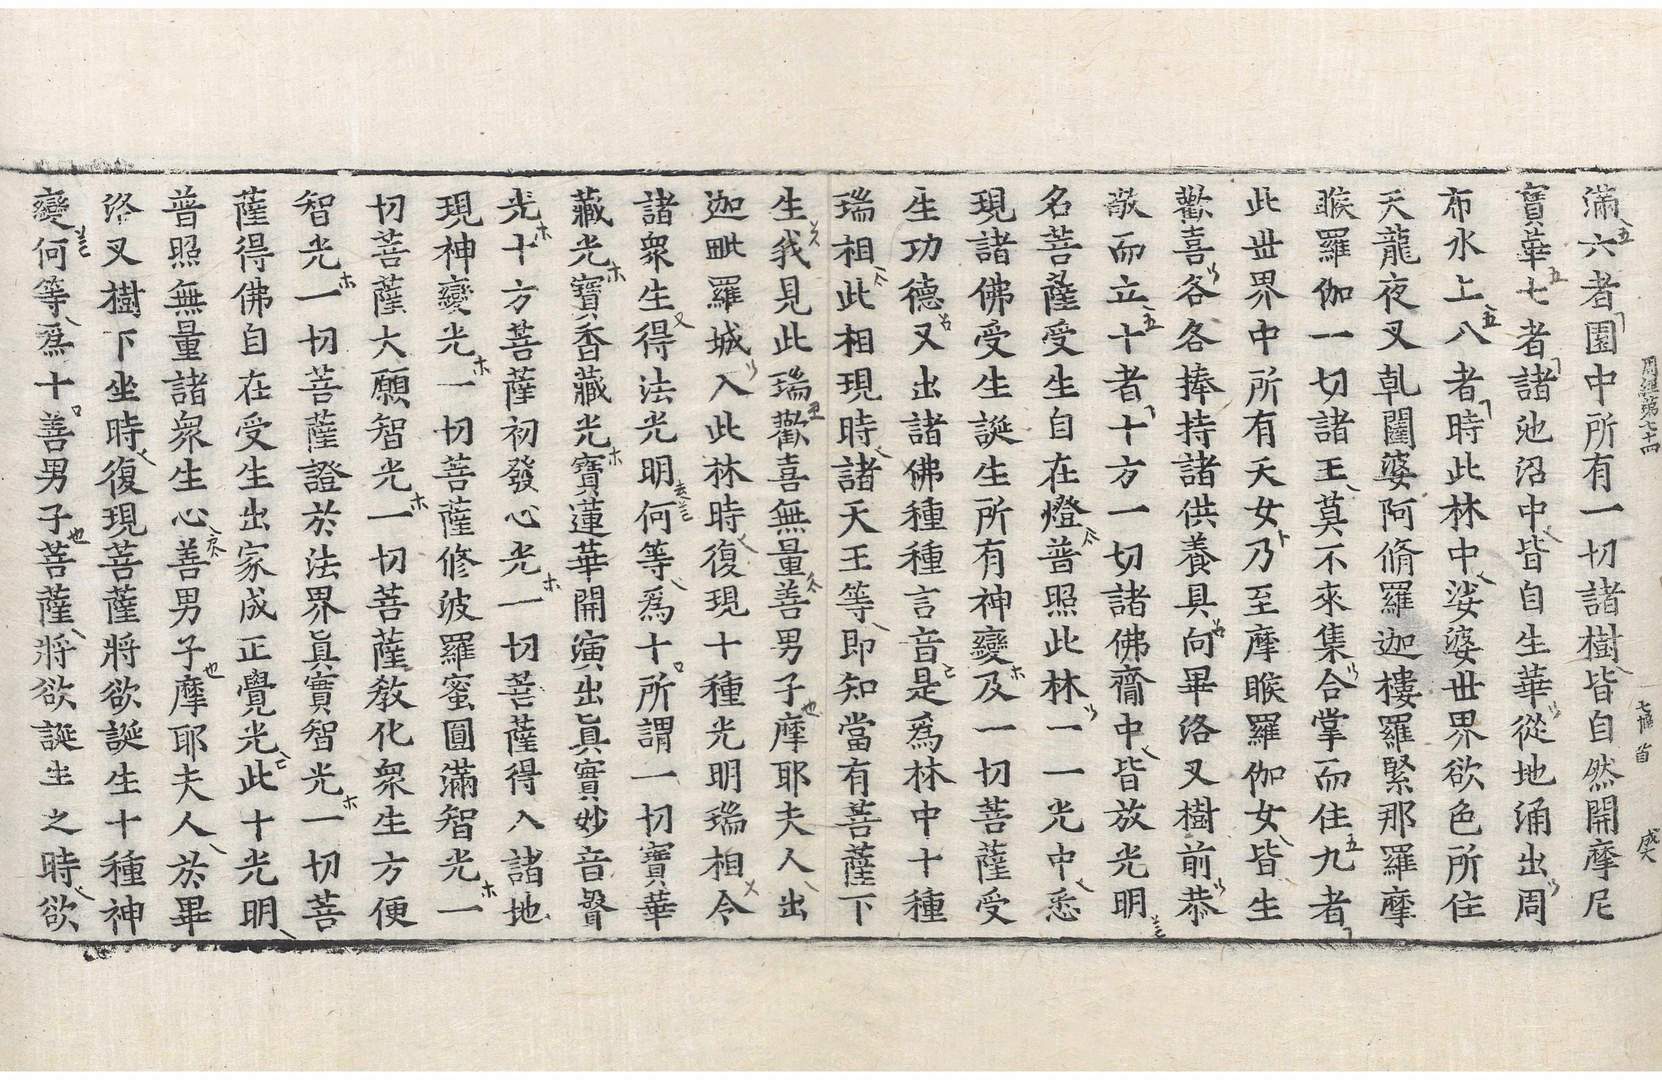 周經第七十四
滿六者園中所有一切諸樹皆自然開摩尼
寶華七者諸池沼中皆自生華從地涌出周
布水上八者時此林中娑婆世界欲色所住
天龍夜叉乹闥婆阿脩羅迦樓羅緊那羅摩
睺羅伽一切諸王莫不來集合掌而住九者
此世界中所有天女乃至摩睺羅伽女皆生
歡喜各各捧持諸供養具向畢洛叉樹前恭
敬而立十者十方一切諸佛齎中皆放光明
名菩薩受生自在燈普照此林一一光中悉
現諸佛受生誕生所有神變及一切菩薩受
生功德又出諸佛種種言音是爲林中十種
瑞相此相現時諸天王等即知當有菩薩下
生我見此瑞歡喜無量善男子摩耶夫人出
迦毗羅城入此林時復現十種光明瑞相令
諸衆生得法光明何等爲十所謂一切寶華
藏光寶香藏光寶蓮華開演出眞實妙音聲
光十方菩薩初發心光一切菩薩得入諸地
現神變光一切菩薩修波羅蜜圓滿智光一
切菩薩大願智光一切菩薩教化衆生方便
智光一切菩薩證於法界眞實智光一切菩
薩得佛自在受生出家成正覺光此十光明
普照無量諸衆生心善男子摩耶夫人於畢
洛叉樹下坐時復現菩薩將欲誕生十種神
變何等爲十善男子菩薩將欲誕生之時欲